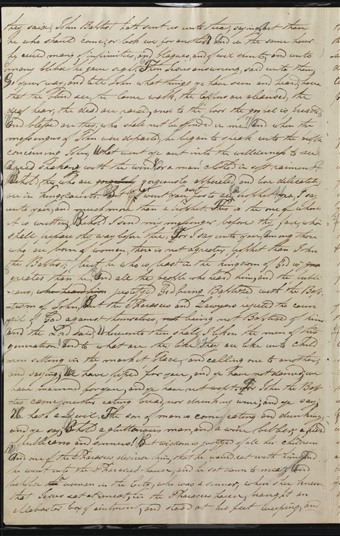 they said, John Baptist hath sent us unto thee, saying, Art thou
he who should come, or look we for another? And in the same hour
he cured many of infirmities, and plagues, and evil spirits, and unto
many blind he gave sight. Then Jesus answering, said unto them,
Go your way, and tell John what things ye have seen and heard, how
that the blind see, the lame walk, the lepers are cleansed, the
deaf hear, the dead are raised, and to the poor the gospel is preached
And blessed are they who shall not be offended in me. And when the
messengers of John were departed, he began to speak unto the people
concerning John, What went ye out into the wilderness to see
A reed shaken with the wind? Or a man clothed in soft raiment?
Behold, they who are gorgeously apparelled, and live delicately,
are in kings courts. But what went ye out for to see, a prophet? Yea, I say
unto you, and much more than a prophet. This is the one of whom
it is written, Behold I send my messenger before thy face, who
shall prepare thy way before thee. For I say unto you, among those
who are born of women, there is not a greater prophet than John
the Baptist; but he who is least in the kingdom of God is
greater than he. And all the people who heard him, and the publi
cans, justified God, being Baptized with the Bap
tism of John. But the Pharisees and Lawyers rejected the coun
sel of God against themselves, not being Baptized of him
and the Lord said, Whereunto then shall I liken the men of this
generation? And to what are they like? They are like unto child
ren sitting in the market place, and calling one to another,
and saying, We have piped for you, and ye have not danced, we
have mourned for you, and ye have not wept. For John the Bap
tist came neither eating bread, nor drinking wine, and ye say,
He hath a Devil. The son of man is come, eating and drinking,
and ye say, Behold a gluttonous man, and a wine bibber, a friend
of publicans and sinners! But wisdom is justified of all her children
And one of the Pharisees desired him, that he would eat with him. And
he went into the Pharisees house, and sat down to meat. And
behold a woman in the City, who was a sinner, when she knew
that Jesus sat at meat, in the Pharisees house, brought an
alabaster box of ointment, and stood at his feet weeping, an